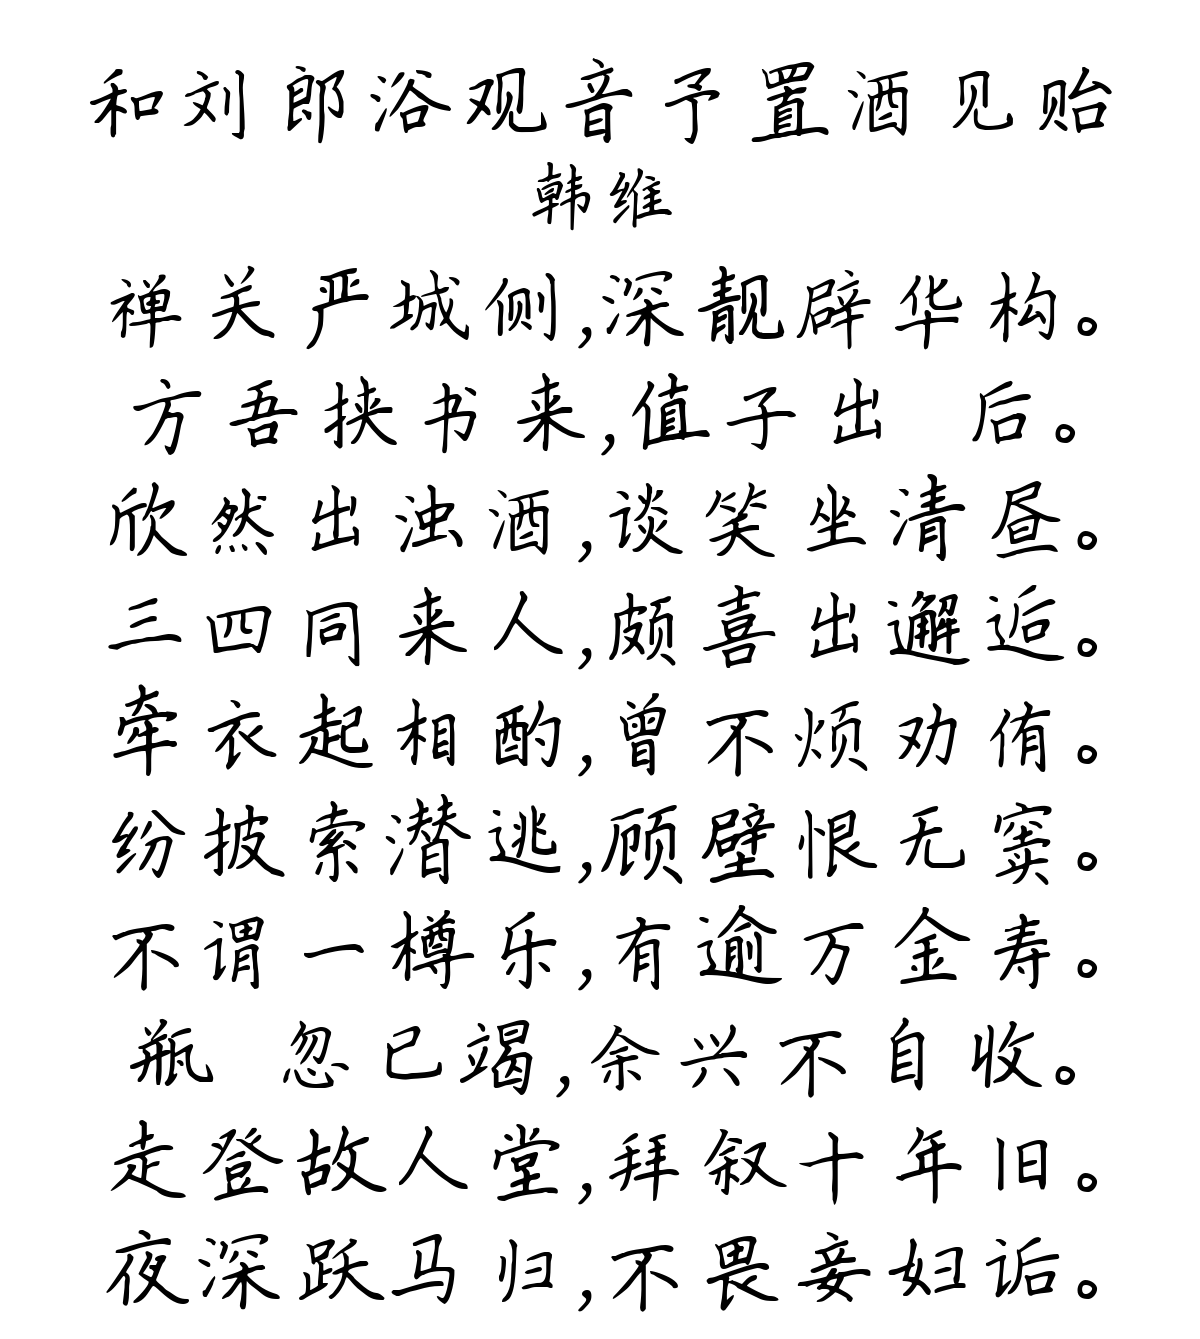 和刘郎浴观音予置酒见贻
韩维
禅关严城侧,深靓辟华构。
方吾挟书来,值子出 后。
欣然出浊酒,谈笑坐清昼。
三四同来人,颇喜出邂逅。
牵衣起相酌,曾不烦劝侑。
纷披索潜逃,顾壁恨无窦。
不谓一樽乐,有逾万金寿。
瓶 忽已竭,余兴不自收。
走登故人堂,拜叙十年旧。
夜深跃马归,不畏妾妇诟。